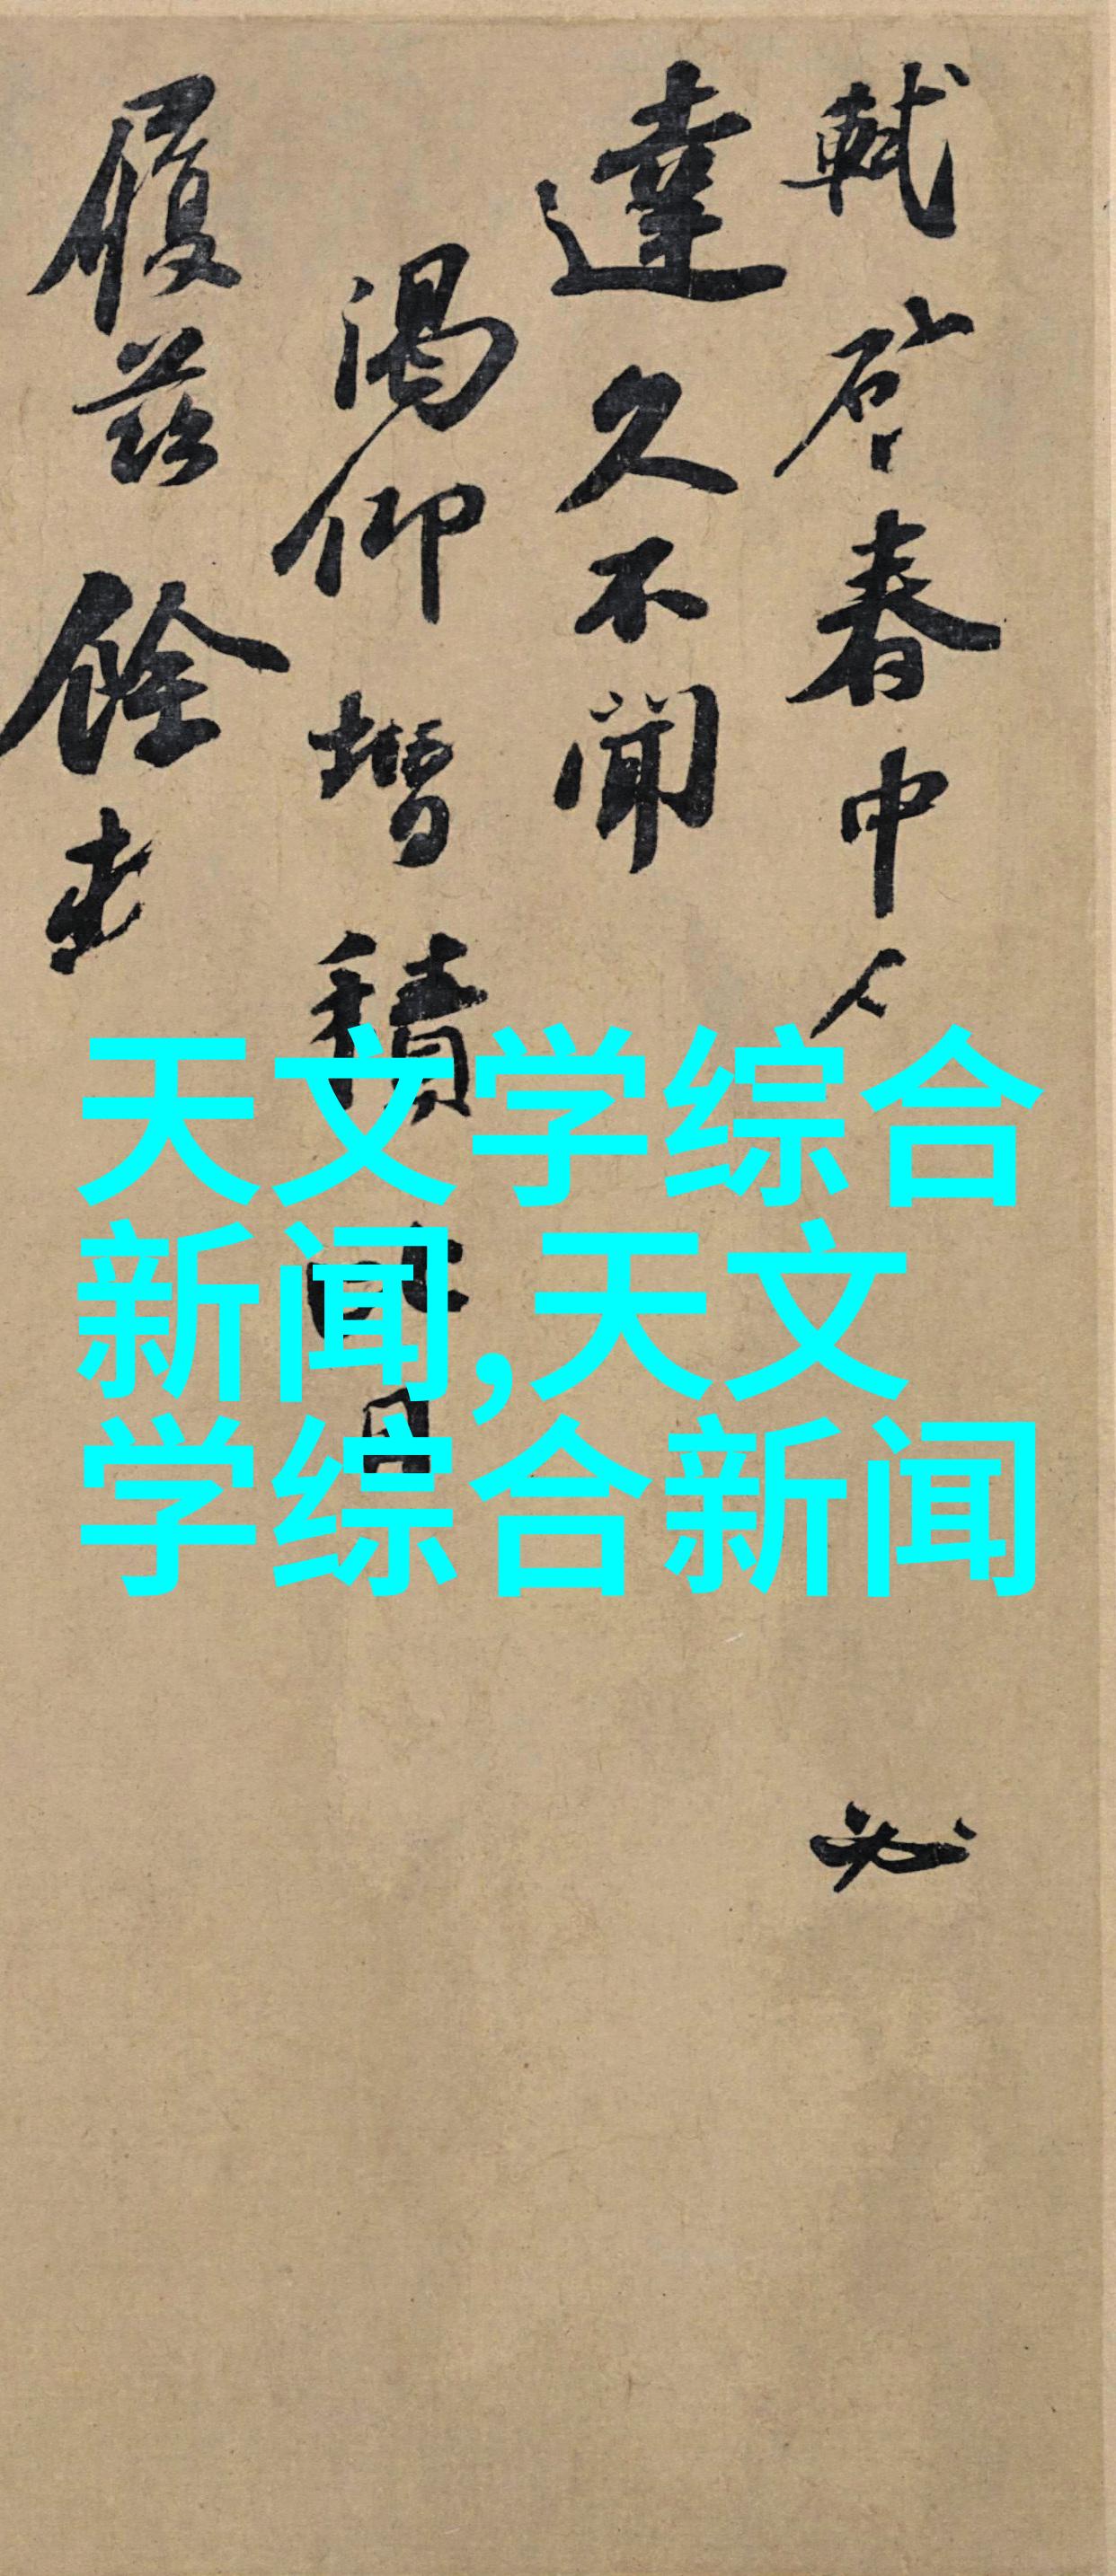 軾啓春中人
必
達久不聞
渴仰增積比
日
履茲餘
天文学综合
新闻,天文
学综合新闻